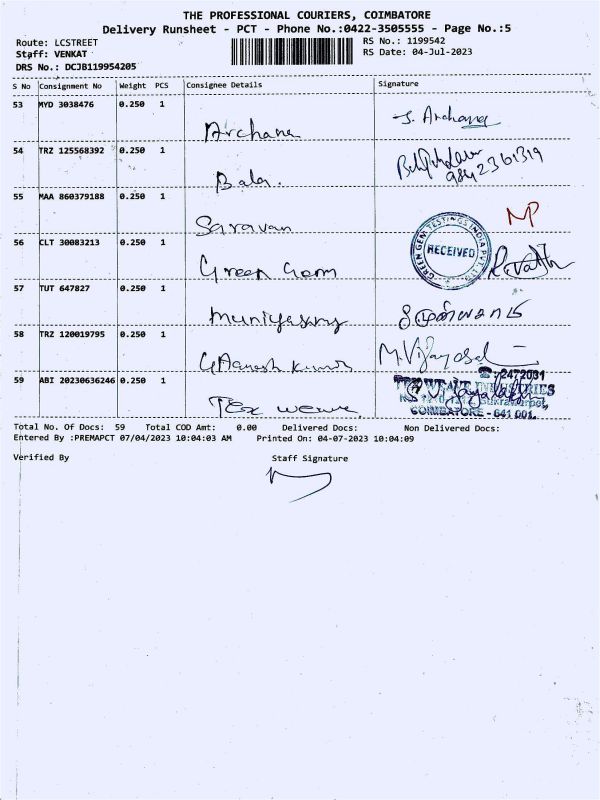 THE PROFESSIONAL COURIERS, COIMBATORE
Delivery Runsheet - PCT - Phone No.:0422-3505555 - Page No.:5
Route: LCSTREET
RS No.: 1199542
Staff: VENKAT
RS Date: 04-Jul-2023
DRS No.: DCJB119954205
S No Consignment No Weight PCS Consignee Details Signature
53 MYD 3038476 0.250 1
Archana J. Archana
54 TRZ 125568392 0.250 1
Bala. 9842361319
55 MAA 860379188 0.250 1
Saravan MP
56 CLT 30083213 0.250 1
Green Gem Revathi
GREEN GEN TESTINGS INDIA PVT. LTD
RECEIVED
57 TUT 647827 0.250 1
58 TRZ 120019795 0.250 1
Ganesh Kumar
59 ABI 20230636246 0.250 1
Tex weave
2472031
TEX WEAVE INDUSTRIES
COIMBATORE - 641 001.
Total No. Of Docs: 59 Total COD Amt: 0.00 Delivered Docs: Non Delivered Docs:
Entered By :PREMAPCT 07/04/2023 10:04:03 AM Printed On: 04-07-2023 10:04:09
Verified By Staff Signature